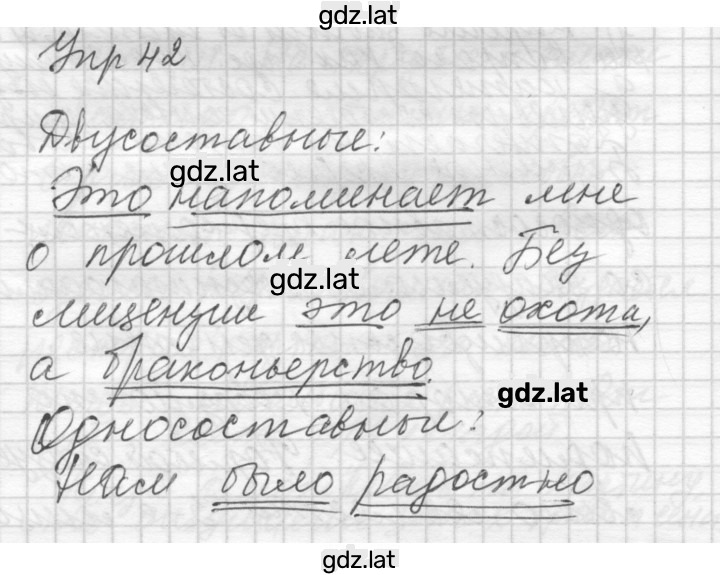 gdz.lat
Упр 42
Двусоставные:
gdz.lat
Это напоминает мне
о прошлом лете. Без
gdz.lat
лицензии это не охота,
а браконьерство.
gdz.lat
Односоставные:
Нам было радостно
gdz.lat